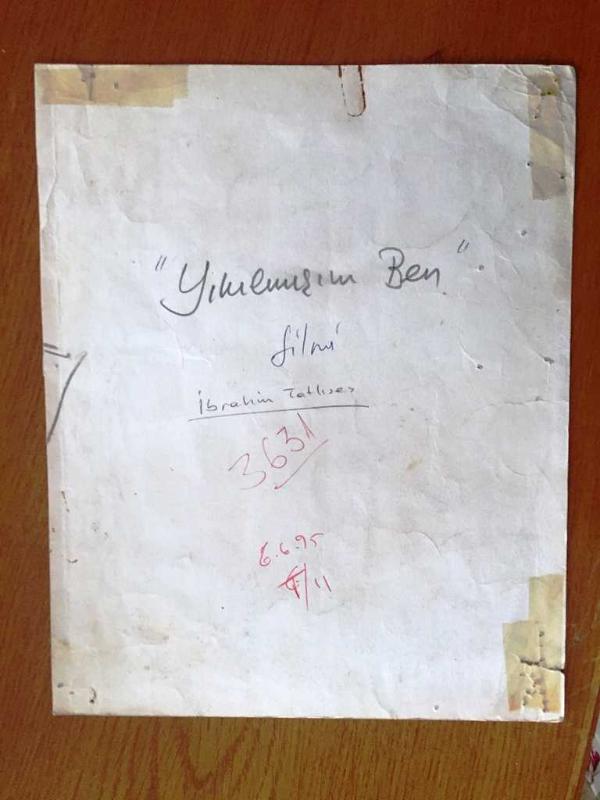 "Yıkılmışım Ben"
filmi
İbrahim Tatlıses
3631
6.6.95
/11